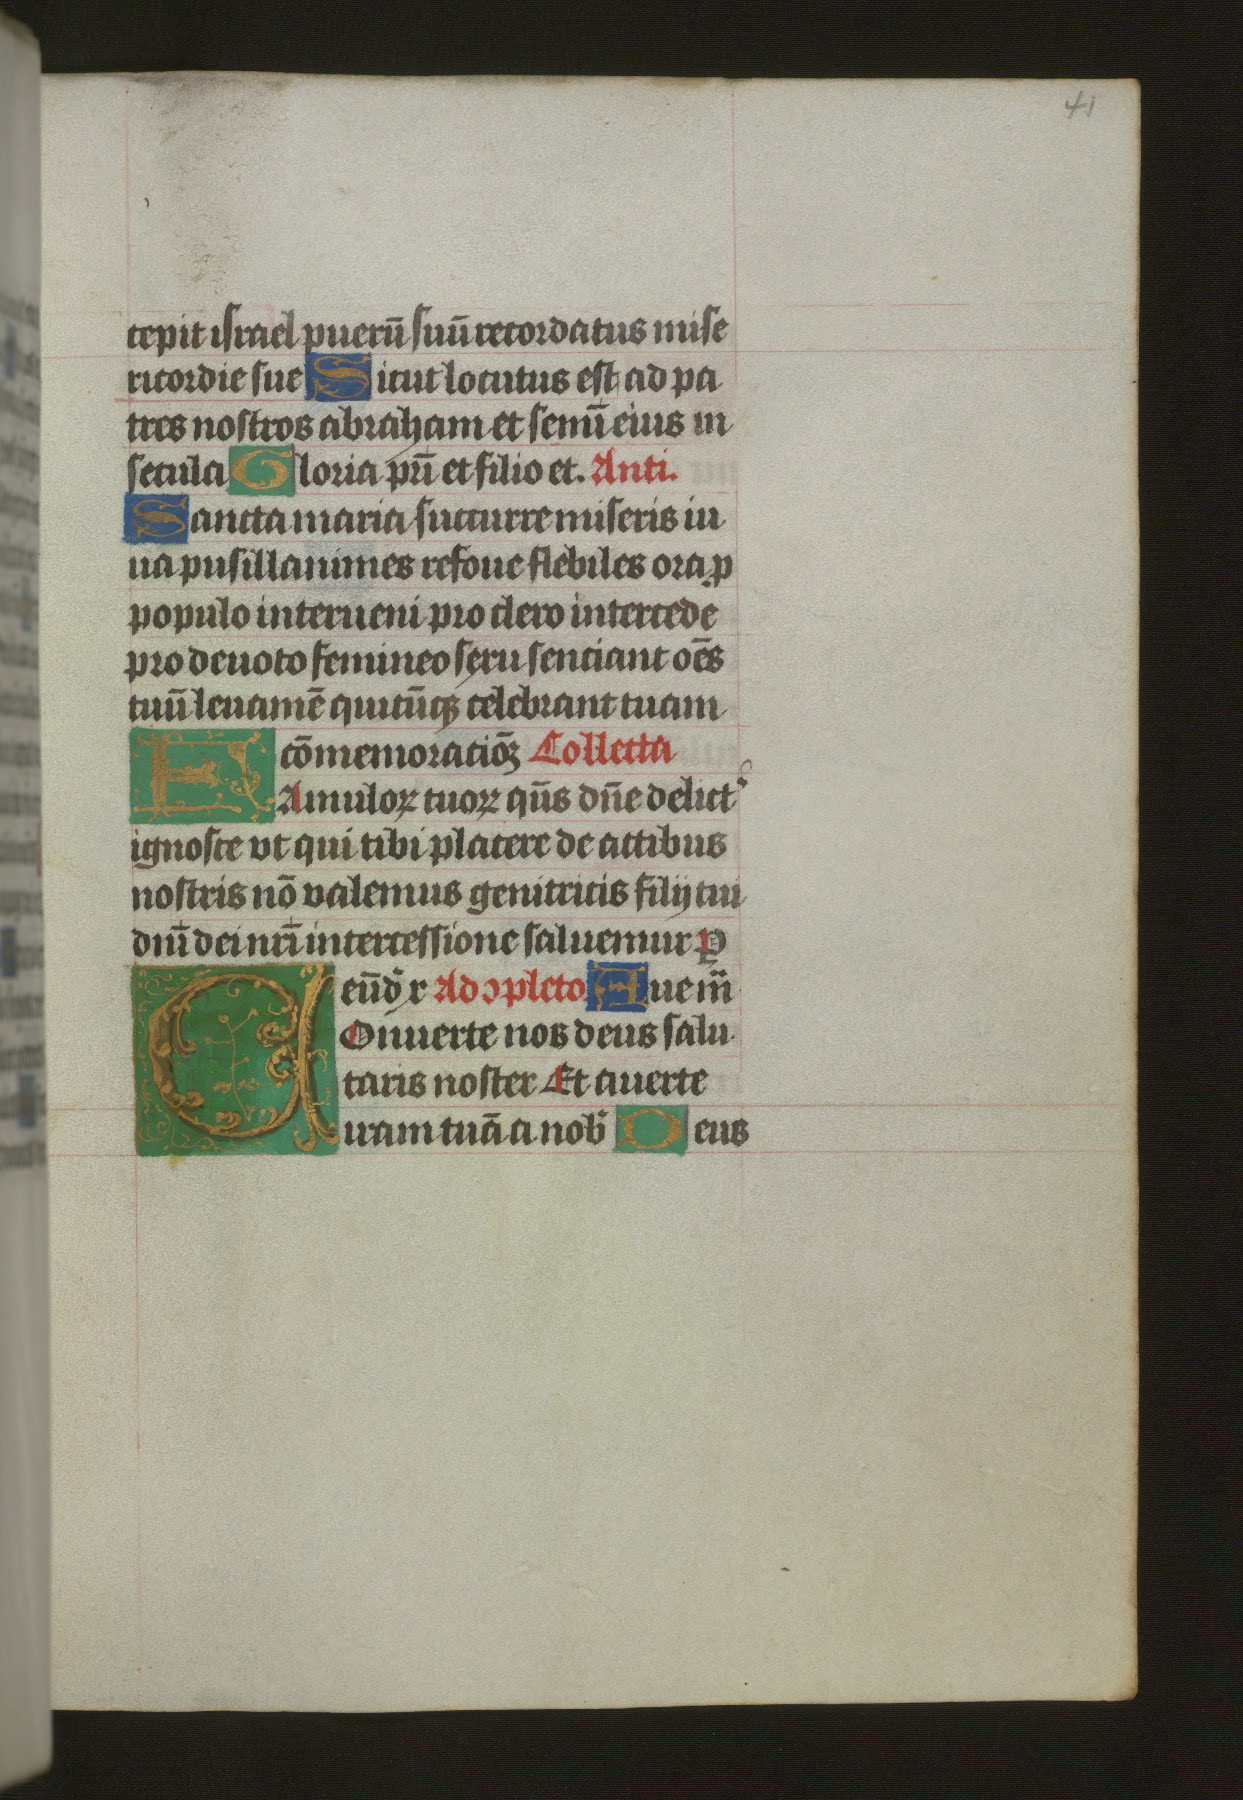 41
cepit israel puerū suū recordatus mise
ricordie sue Sicut locutus est ad pa
tres nostros abraham et semī eius in
secula Gloria pr̄i et filio et. Anti.
Sancta maria succurre miseris iu
ua pusillanimes refoue flebiles ora p
populo interueni pro clero intercede
pro deuoto femineo sexu sentiant oēs
tuū leuamē quicūqꝫ celebrant tuam
cōmemoratiōꝫ Collecta
FAmuloꝝ tuoꝝ qūs dn̄e delict᾽
ignosce vt qui tibi placere de actibus
nostris nō valemus genitricis filij tui
dn̄i dei nr̄i intercessione saluemur P
eūdꝫ x Ad ↄpleto Aue m̄
COnuerte nos deus salu
taris noster Et auerte
iram tuā a nob᾽ Deus